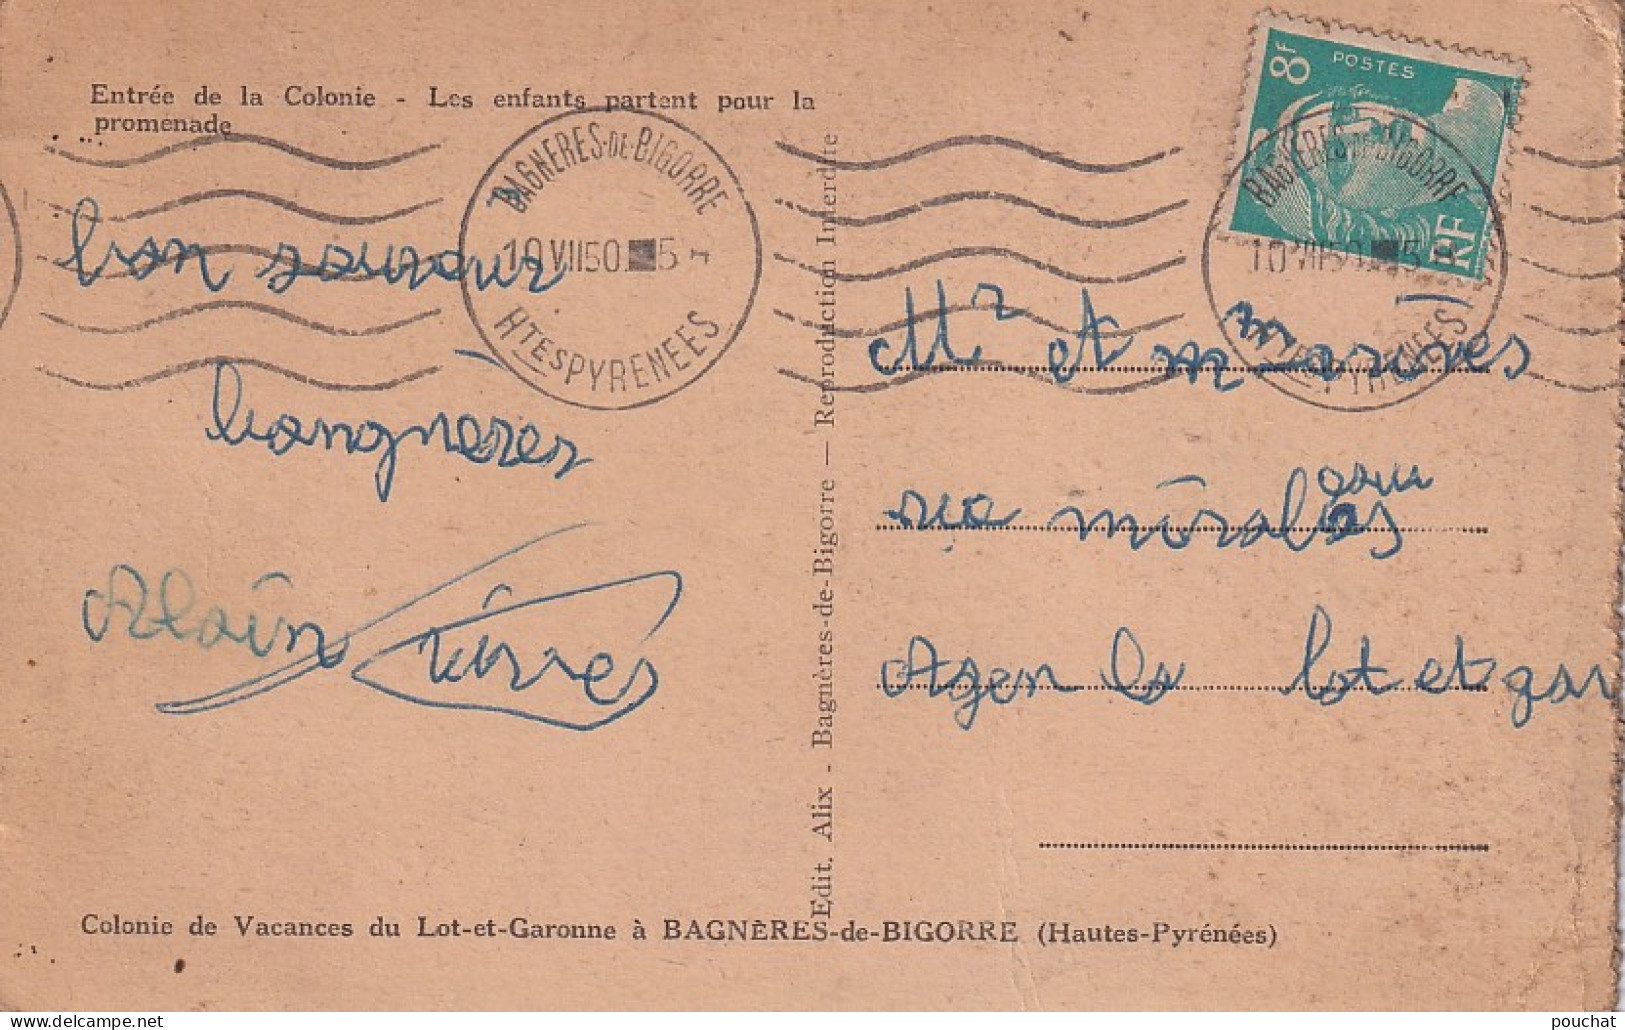 Entrée de la Colonie - Les enfants partent pour la
promenade
8F
POSTES
RF
BAGNERES-DE-BIGORRE
10 VII 50 5
HTES PYRENEES
BAGNERES-DE-BIGORRE
10 VII 50 5
HTES PYRENEES
bon
Alain
Edit. Alix - Bagnères-de-Bigorre — Reproduction Interdite
Mr et m
Agen lo lot et gar
Colonie de Vacances du Lot-et-Garonne à BAGNÈRES-de-BIGORRE (Hautes-Pyrénées)
pouchat